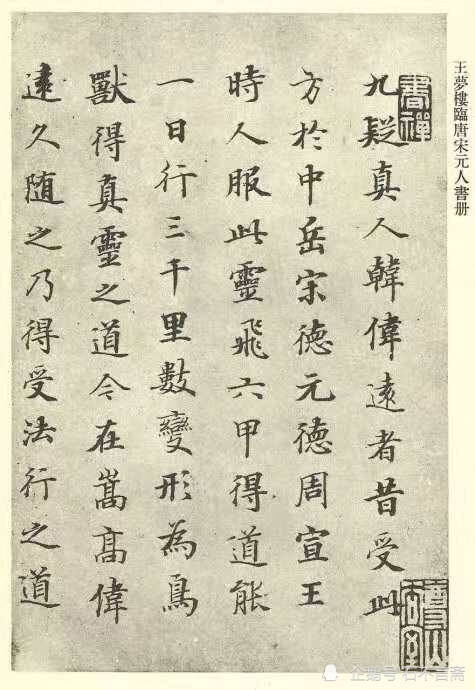 王夢樓臨唐宋元人書册
書禪
九疑真人韓偉遠者昔受此
方於中岳宋德元德周宣王
時人服此靈飛六甲得道能
一日行三千里數變形為鳥
獸得真靈之道今在嵩髙偉
遠久随之乃得受法行之道
企鹅号 石不言斋